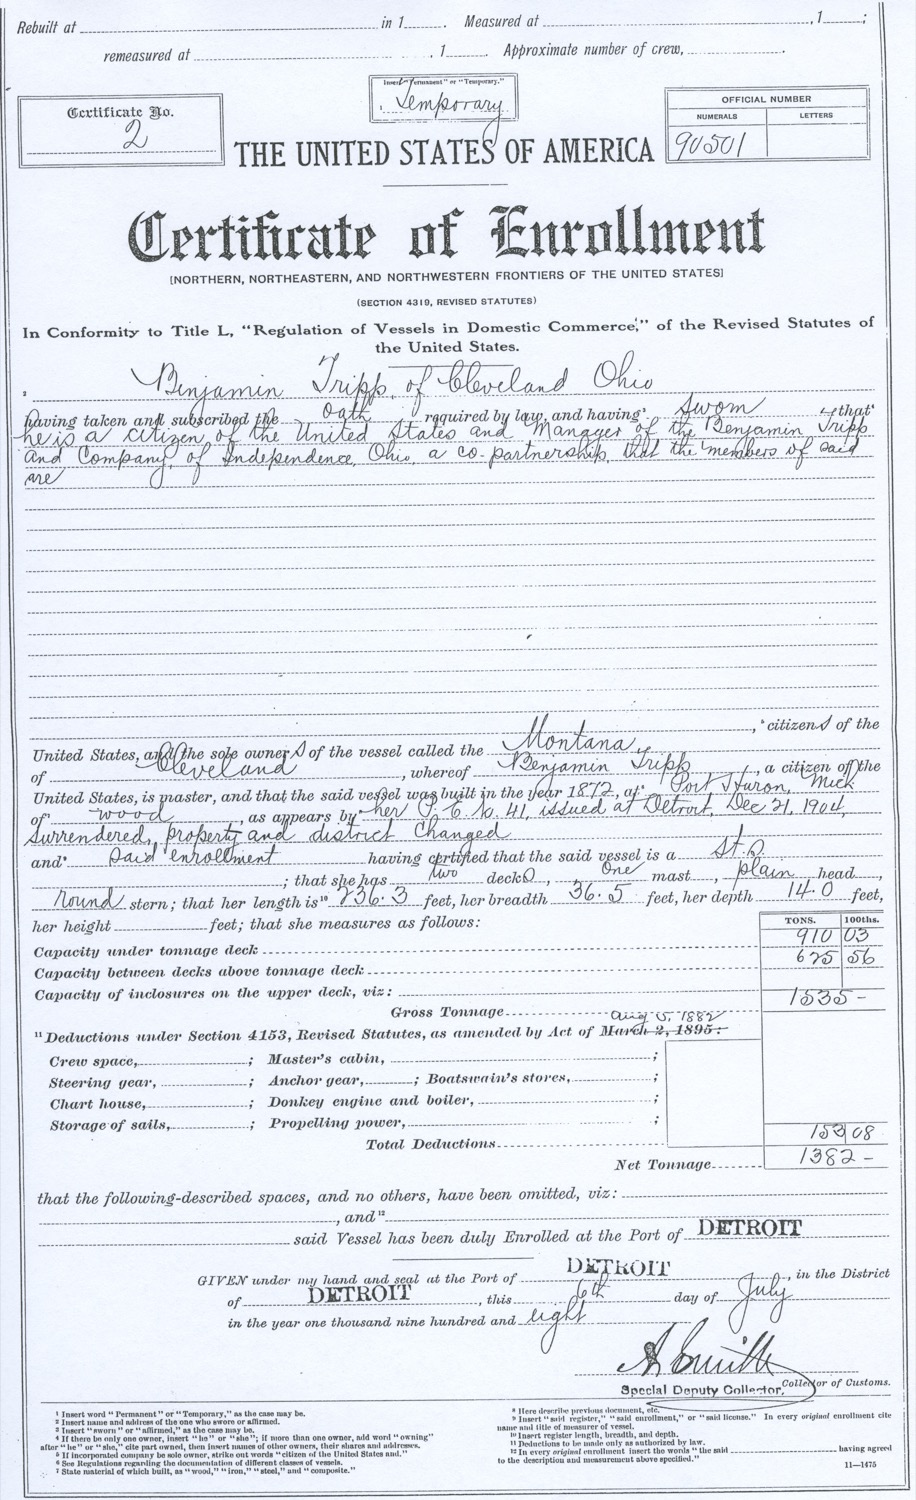 Rebuilt at in 1 . Measured at , 1 ;
remeasured at , 1 . Approximate number of crew, .
Insert "Permanent" or "Temporary."
1 Temporary
Certificate No.
2
OFFICIAL NUMBER
NUMERALS LETTERS
90501
THE UNITED STATES OF AMERICA
Certificate of Enrollment
[NORTHERN, NORTHEASTERN, AND NORTHWESTERN FRONTIERS OF THE UNITED STATES]
(SECTION 4319, REVISED STATUTES)
In Conformity to Title L, "Regulation of Vessels in Domestic Commerce," of the Revised Statutes of
the United States.
2 Benjamin Tripp, of Cleveland Ohio
having taken and subscribed the Oath required by law, and having 3 Sworn that 4
he is a citizen of the United States and Manager of the Benjamin Tripp
and Company, of Independence, Ohio, a co-partnership, that the members of said
are
, 5 citizens of the
United States, and the sole owners of the vessel called the Montana,
of Cleveland, whereof Benjamin Tripp, a citizen of the
United States, is master, and that the said vessel was built in the year 1872, at Port Huron, Mich
of 7 wood, as appears by 8 her P. E. No. 41, issued at Detroit, Dec 21, 1904,
Surrendered, property and district changed
and 9 Said enrollment having certified that the said vessel is a St. S.
; that she has two decks, one mast, plain head,
round stern; that her length is 10 236.3 feet, her breadth 36.5 feet, her depth 14.0 feet,
her height feet; that she measures as follows:
TONS. 100ths.
Capacity under tonnage deck 910 03
Capacity between decks above tonnage deck 625 56
Capacity of inclosures on the upper deck, viz:
Gross Tonnage 1535 -
Aug 5, 1882
11 Deductions under Section 4153, Revised Statutes, as amended by Act of March 2, 1895:
Crew space, ; Master's cabin, ;
Steering gear, ; Anchor gear, ; Boatswain's stores, ;
Chart house, ; Donkey engine and boiler, ;
Storage of sails, ; Propelling power, ;
Total Deductions 153 08
Net Tonnage 1382 -
that the following-described spaces, and no others, have been omitted, viz:
, and 12
said Vessel has been duly Enrolled at the Port of DETROIT
GIVEN under my hand and seal at the Port of DETROIT, in the District
of DETROIT, this 6th day of July
in the year one thousand nine hundred and eight
Special Deputy Collector. Collector of Customs.
1 Insert word "Permanent" or "Temporary," as the case may be.
2 Insert name and address of the one who swore or affirmed.
3 Insert "sworn" or "affirmed," as the case may be.
4 If there be only one owner, insert "he" or "she"; if more than one owner, add word "owning"
after "he" or "she," cite part owned, then insert names of other owners, their shares and addresses.
5 If incorporated company be sole owner, strike out words "citizen of the United States and."
6 See Regulations regarding the documentation of different classes of vessels.
7 State material of which built, as "wood," "iron," "steel," and "composite."
8 Here describe previous document, etc.
9 Insert "said register," "said enrollment," or "said license." In every original enrollment cite
name and title of measurer of vessel.
10 Insert register length, breadth, and depth.
11 Deductions to be made only as authorized by law.
12 In every original enrollment insert the words "the said having agreed
to the description and measurement above specified."
11—1475